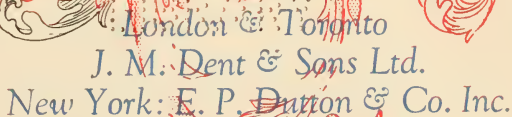 London & Toronto
J. M. Dent & Sons Ltd.
New York: E. P. Dutton & Co. Inc.